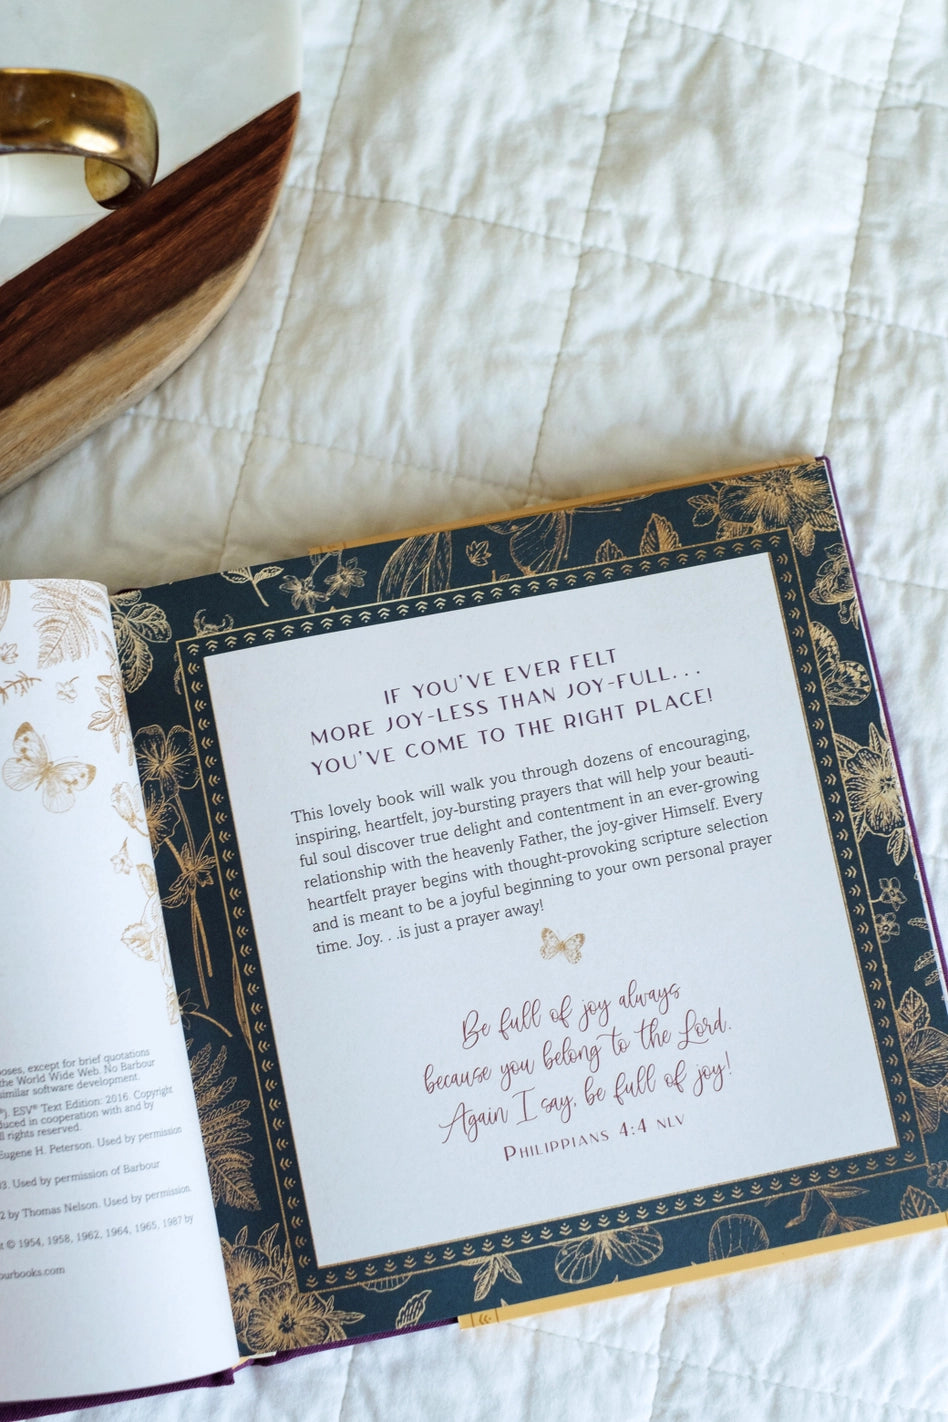 IF YOU'VE EVER FELT
MORE JOY-LESS THAN JOY-FULL. . .
YOU'VE COME TO THE RIGHT PLACE!
This lovely book will walk you through dozens of encouraging,
inspiring, heartfelt, joy-bursting prayers that will help your beauti-
ful soul discover true delight and contentment in an ever-growing
relationship with the heavenly Father, the joy-giver Himself. Every
heartfelt prayer begins with thought-provoking scripture selection
and is meant to be a joyful beginning to your own personal prayer
time. Joy. . .is just a prayer away!
Be full of joy always
because you belong to the Lord.
Again I say, be full of joy!
PHILIPPIANS 4:4 NLV
oses, except for brief quotations
the World Wide Web. No Barbour
similar software development.
®). ESV® Text Edition: 2016. Copyright
duced in cooperation with and by
ll rights reserved.
Eugene H. Peterson. Used by permission
3. Used by permission of Barbour
2 by Thomas Nelson. Used by permission.
t © 1954, 1958, 1962, 1964, 1965, 1987 by
ourbooks.com